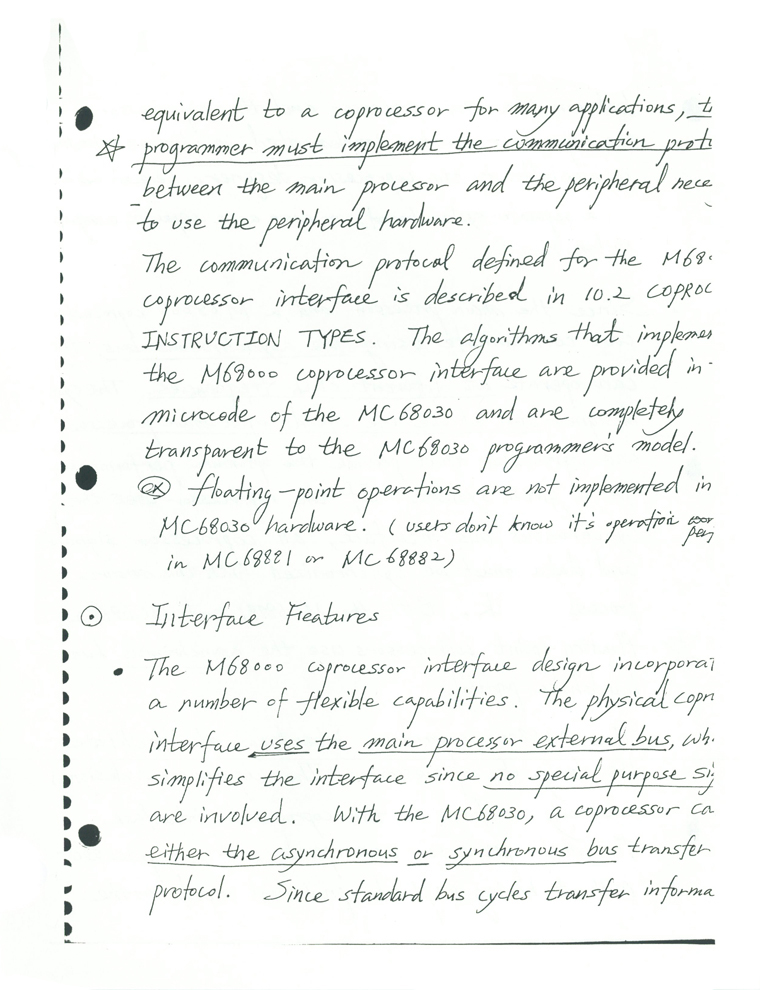 equivalent to a coprocessor for many applications, t
programmer must implement the communication prot
between the main processor and the peripheral nece
to use the peripheral hardware.
The communication protocol defined for the M68
coprocessor interface is described in 10.2 COPROC
INSTRUCTION TYPES. The algorithms that implemen
the M68000 coprocessor interface are provided in
microcode of the MC68030 and are completely
transparent to the MC68030 programmer's model.
ex floating-point operations are not implemented in
MC68030 hardware. (users don't know it's operation
in MC68881 or MC68882)
Interface Features
• The M68000 coprocessor interface design incorporat
a number of flexible capabilities. The physical copr
interface uses the main processor external bus, wh
simplifies the interface since no special purpose sig
are involved. With the MC68030, a coprocessor ca
either the asynchronous or synchronous bus transfer
protocol. Since standard bus cycles transfer informa